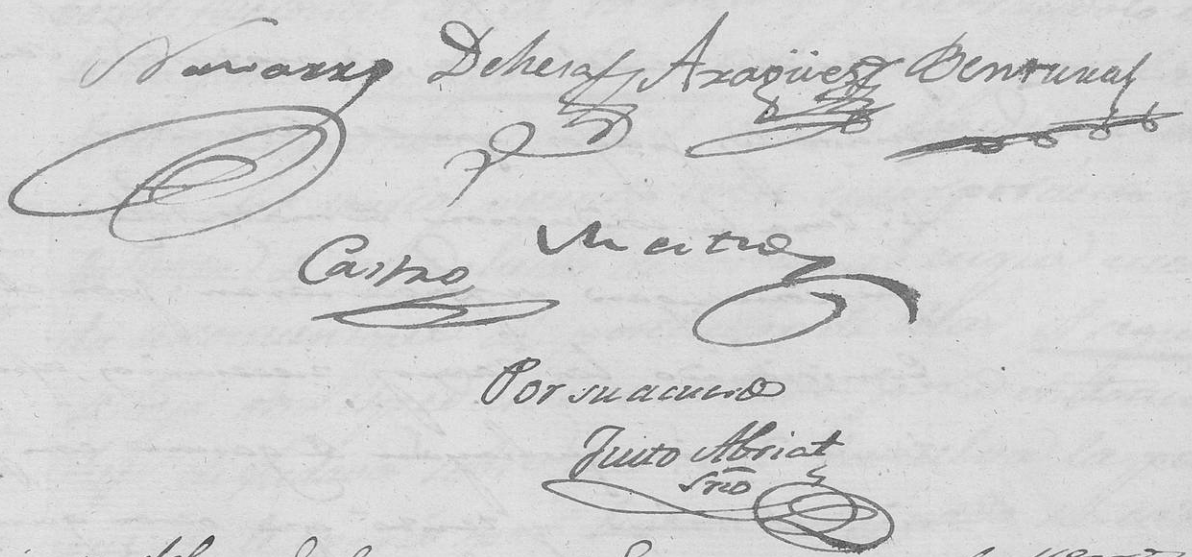 Navarro Dehesa Aragües Bentura
Castro
Por su acuerdo
Justo Abriat
Srio